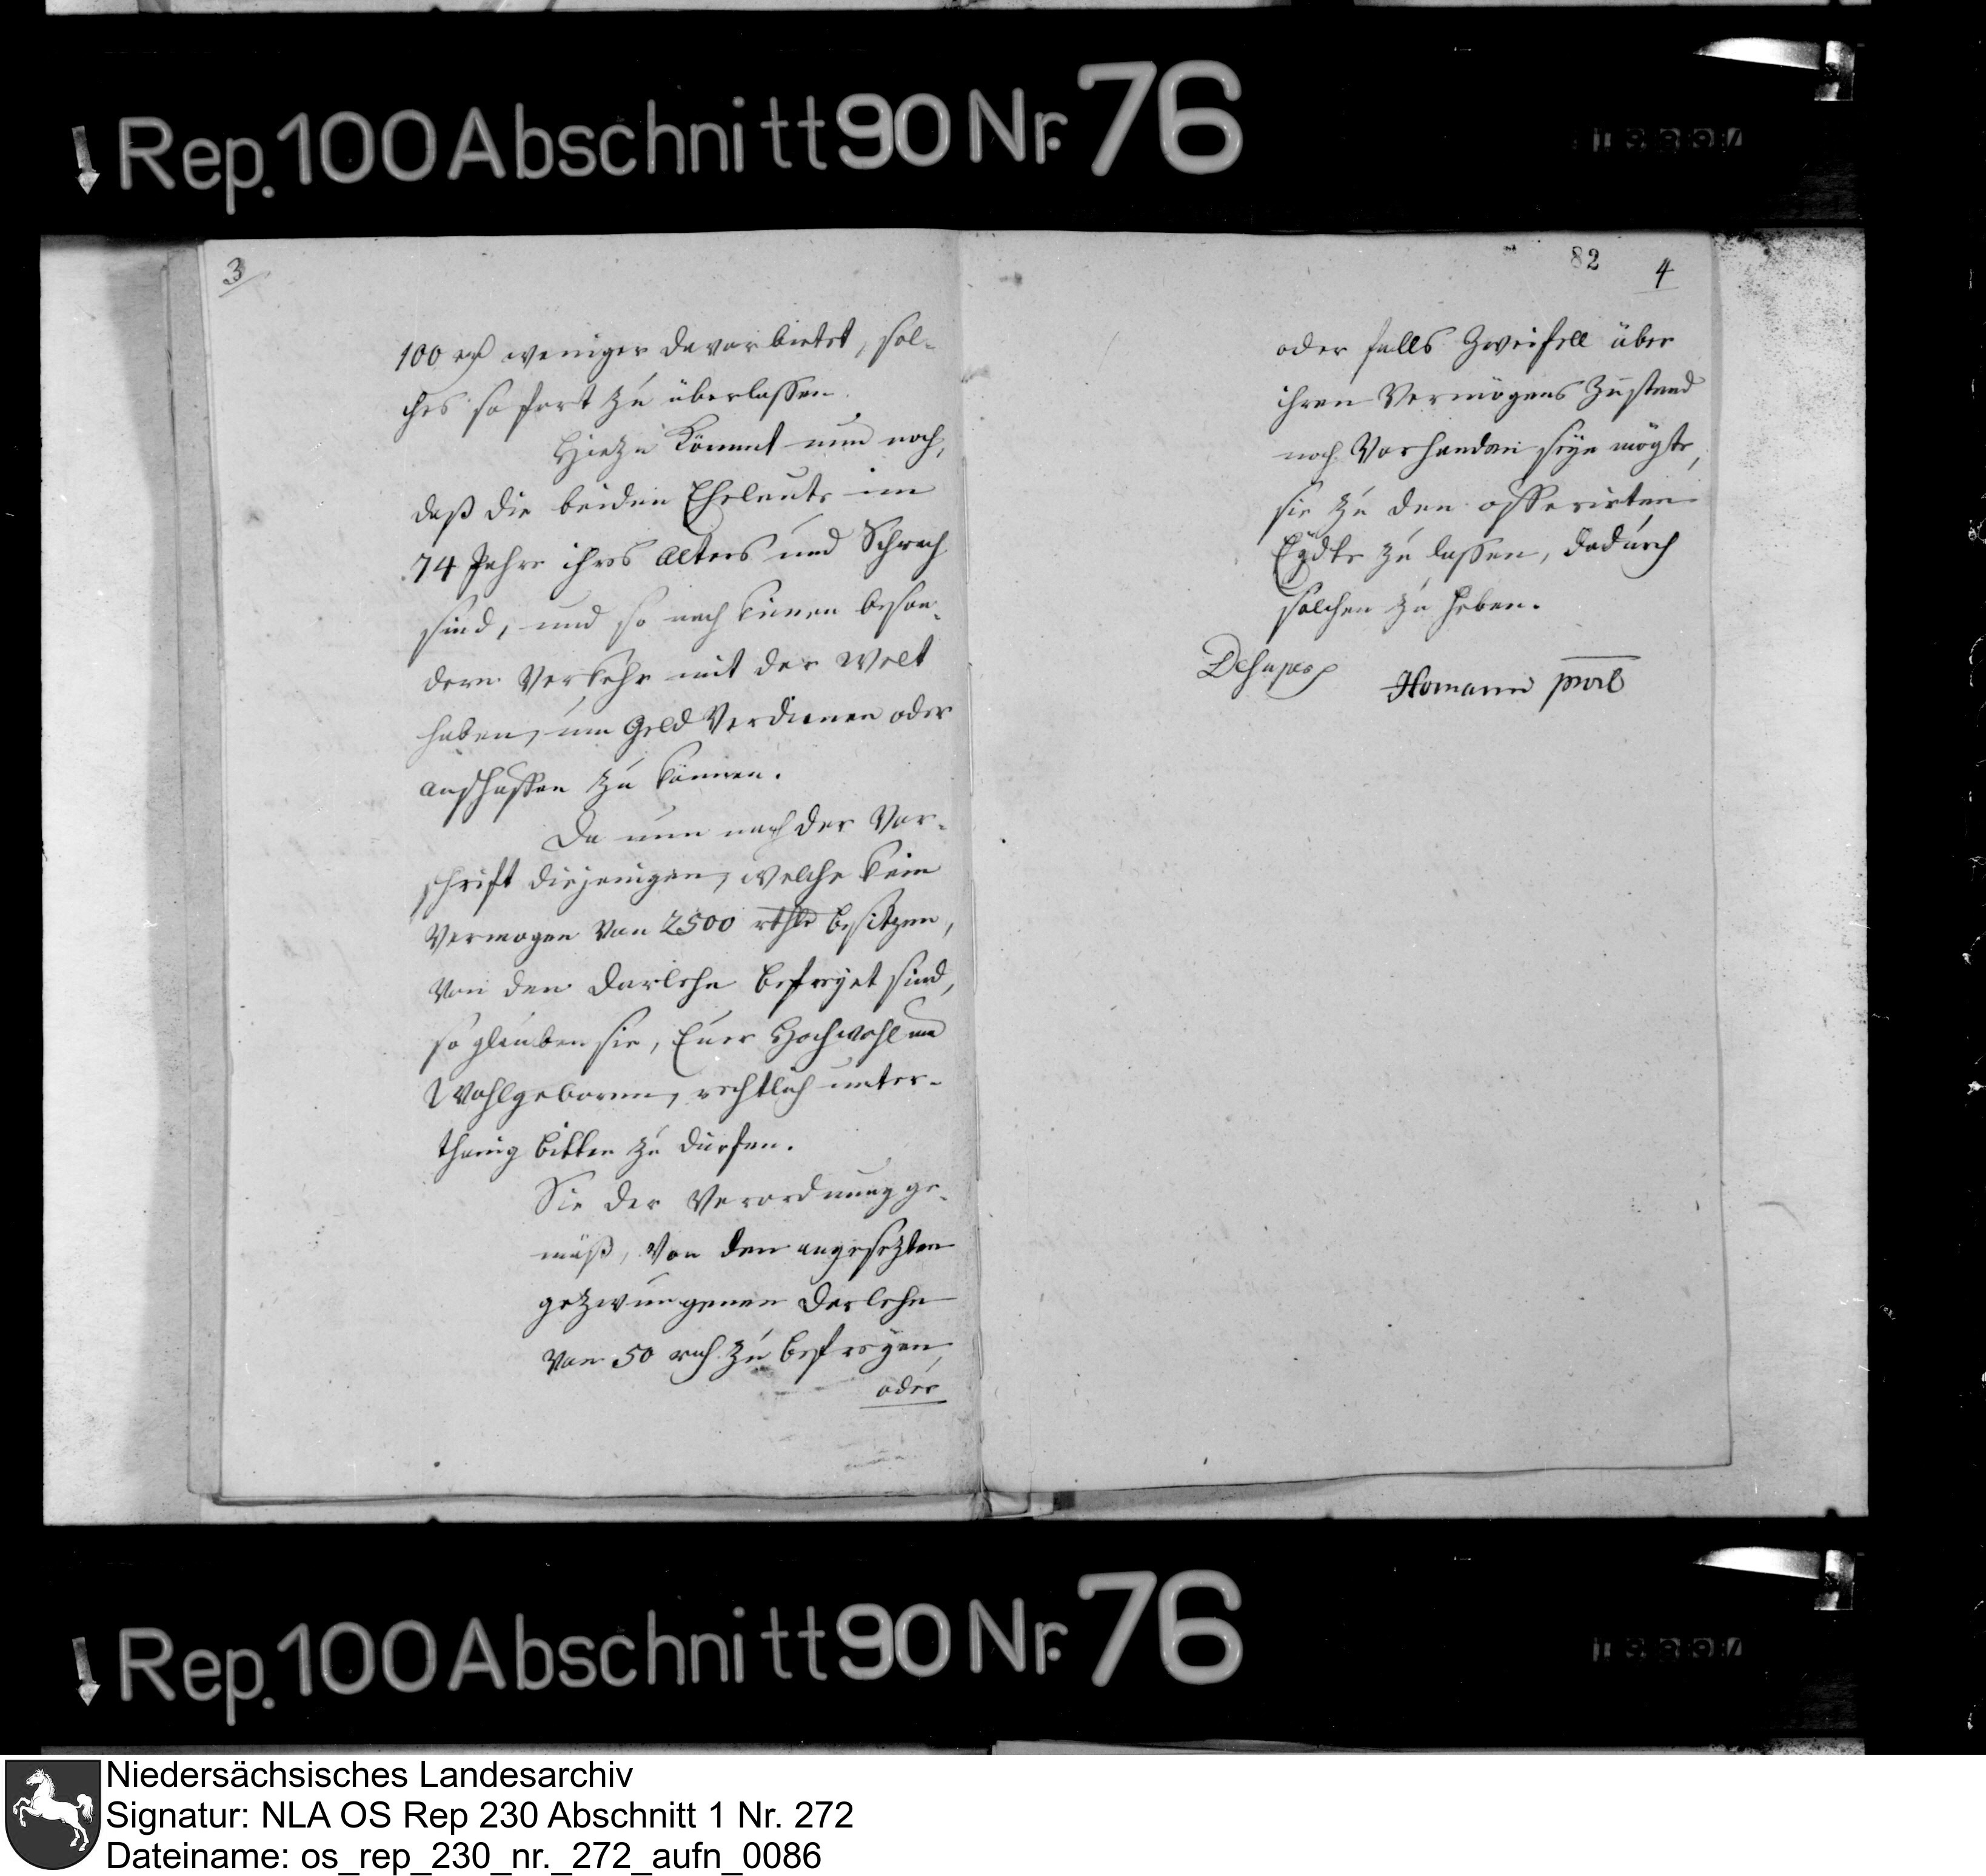 Rep. 100 Abschnitt 90 Nr. 76
3
100 rth weniger davor bietet, sol-
ches so fort zu überlassen.
Hiezu kömmt nun noch,
daß die beiden Eheleute im
74 Jahre ihres alters und Schwach
sind, und so nach keinen beson-
dern Verkehr mit der Welt
haben, um Geld Verdienen oder
anschaffen zu können.
Da nun nach der Vor-
schrift diejenigen, welche kein
Vermogen Von 2500 rthlr besitzen,
Von den Darlehn befreyet sind,
so glauben sie, Euer Hochwohl und
Wohlgeboren, rechtlich unter-
thänig bitten zu dürfen.
Sie der Verordnung ge-
mäß, Von dem angesezten
gezwungenen Darlehn
Von 50 rth zu befreyen,
oder
82 4
oder falls Zweifell über
ihren Vermögens Zustand
noch Vorhanden seyn mögte,
sie zu den offerirten
Eydte zu lassen, dadurch
solchen zu heben.
Homann
Rep. 100 Abschnitt 90 Nr. 76
Niedersächsisches Landesarchiv
Signatur: NLA OS Rep 230 Abschnitt 1 Nr. 272
Dateiname: os_rep_230_nr._272_aufn_0086